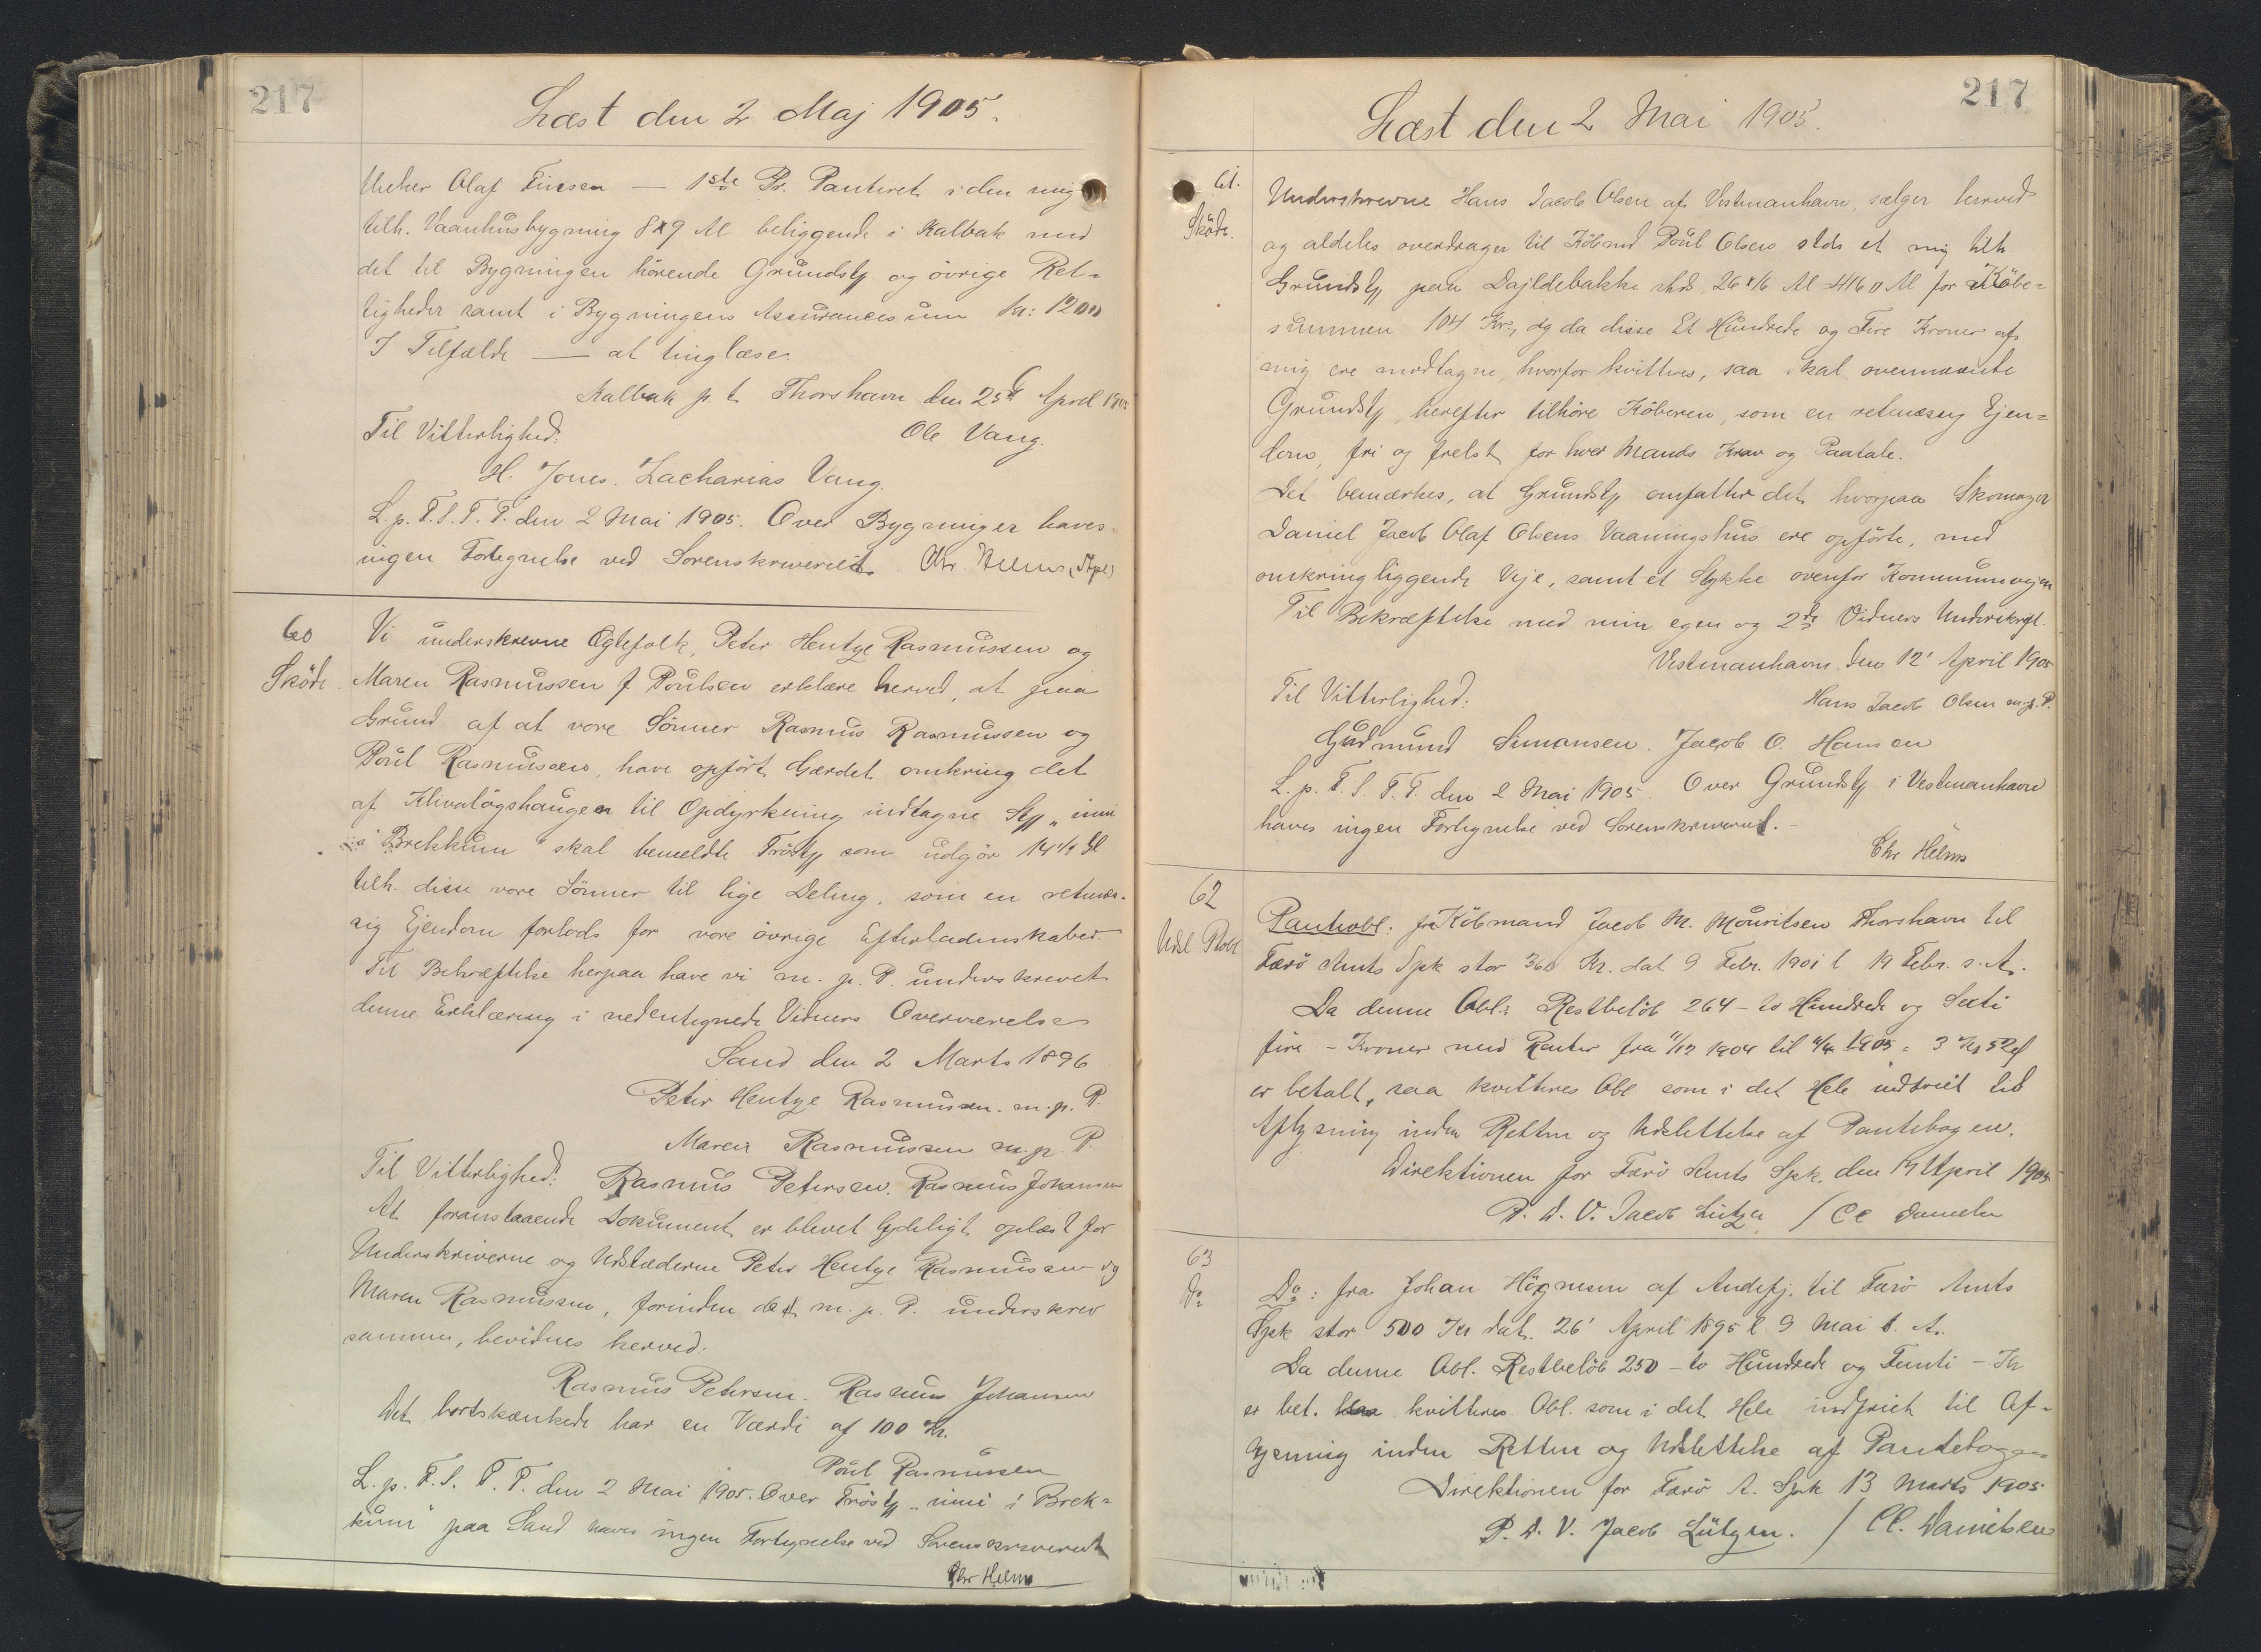 217
Læst den 2 Maj 1905.
Olaf Finsen — 1ste Pr. Panteret i den mig
tilh. Vaanhusbygning 8x9 Al beliggende i Kalbak med
det til Bygningen hörende Grundsty og övrige Ret-
tigheder samt i Bygningens Assurancesum Kr: 1200
I Tilfælde — at tinglæse.
Kalbak p. t. Thorshavn den 25d April 1905
Til Vitterlighed: Ole Vang.
H. Jones. Zacharias Vang.
L. p. F. S. T. T. den 2 Mai 1905. Over Bygninger haves
ingen Fortegnelse ved Sorenskriveriet. Chr. Helms
60 Vi underskrevne Ægtefolk, Peter Hentze Rasmussen og
Sköde. Maren Rasmussen f Poulsen erklære herved, at paa
Grund af at vore Sönner Rasmus Rasmussen og
Poul Rasmussen, have opfört Gærdet omkring det
af Klivalögshaugen til Opdyrkning indtagne Sty „inni
i Brekkum" skal bemeldte Trösty som udgör 14½
tilh. disse vore Sönner til lige Deling, som en retmæs-
sig Ejendom forlods for vore övrige Efterladenskaber.
Til Bekræftelse herpaa have vi m. p. P. underskrevet
denne Erklæring i nedentegnede Vidners Overværelse
Sand den 2 Marts 1896
Peter Hentze Rasmussen. m. p. P.
Maren Rasmussen m. p. P.
Til Vitterlighed: Rasmus Petersen. Rasmus Johansen
At foranstaaende Dokument er blevet tydeligt oplæst for
Underskriverne og Udstæderne Peter Hentze Rasmussen og
Maren Rasmussen, forinden de m. p. P. underskrev
samme, bevidnes herved.
Rasmus Petersen. Rasmus Johansen
Det bortskænkede har en Værdi af 100 Kr.
Poul Rasmussen
L. p. F. S. T. T. den 2 Mai 1905. Over Trösty „inni i Brek-
kum" paa Sand haves ingen Fortegnelse ved Sorenskriveriet
Chr Helms
217
Læst den 2 Mai 1905.
61. Underskrevne Hans Jacob Olsen af Vestmanhavn, sælger herved
Sköde. og aldeles overdrager til Köbmd Poul Olsen stds et mig tilh
Grundsty paa Dajldebakke stds, 26x16 Al = 416 □ Al for Köbe-
summen 104 Kr., og da disse Et Hundrede og Fire Kroner af
mig ere modtagne, hvorfor kvitteres, saa skal ovennævnte
Grundsty, herefter tilhöre Köberen, som en retmæssig Ejen-
dom, fri og frelst for hver Mands Krav og Paatale.
Det bemærkes, at Grundsty omfatter det hvorpaa Skomager
Daniel Jacob Olaf Olsens Vaaningshus ere opförte, med
omkringliggende Veje, samt et Stykke ovenfor Kommunevejen
Til Bekræftelse med min egen og 2de Vidners Underskrift.
Vestmanhavn den 12' April 1905
Til Vitterlighed: Hans Jacob Olsen m. p. P.
Gudmund Simonsen. Jacob O. Hansen
L. p. F. S. T. T. den 2 Mai 1905. Over Grundsty i Vestmanhavn
haves ingen Fortegnelse ved Sorenskriveriet.
Chr Helms
62 Pantobl: fra Köbmand Jacob M. Mouritsen Thorshavn til
Udsl Pobl Færö Amts Spk stor 360 Kr. dat 9 Febr. 1901 l 19 Febr. s. A.
Da denne Obl.s Restbelöb 264 - to Hundrede og Sexti
fire - Kroner med Renter fra 11/12 1904 til 1905 = 3 Kr 52
er betalt, saa kvitteres Obl som i det Hele indfriet til
Aflysning inden Retten og Udslettelse af Pantebogen.
Direktionen for Færö Amts Spk. den April 1905
P. D. V. Jacob Lützen / CC Danielsen
63 Do: fra Johan Högnesen af Andefj. til Færö Amts
Do Spk stor 500 Kr dat. 26' April 1895 l 9 Mai s. A.
Da denne Obl. Restbelöb 250 - to Hundrede og Femti - Kr
er bet. kvitteres Obl. som i det Hele indfriet til Af-
lysning inden Retten og Udslettelse af Pantebogen
Direktionen for Færö A. Spk 13 Marts 1905
P. D. V. Jacob Lützen. / CC. Danielsen